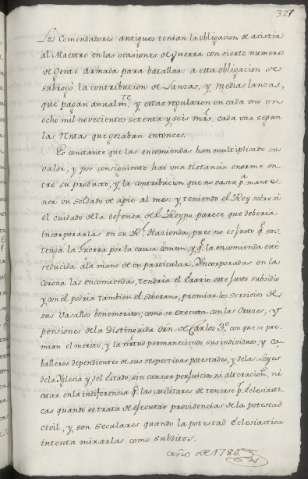 321
Los Comendadores antiguos tenian la obligacion de asistir
al Maestre en las ocasiones de Guerra con cierto numero
de Gente Armada para batallar: a esta obligacion se
subrogó la contribucion de Lanzas, y medias lanzas,
que pagan anualm.te y estas regularon en cada una con
ocho mil novecientos setenta y seis mas, cada una segun
las Rentas que gozaban entonces.
Es constante que las encomiendas han multiplicado su
valor, y por consiguiente hai una distancia enorme en
tre su producto, y la contribucion que no basta p.a mante
ner un Soldado de apie al mes: y teniendo el Rey sobre si
el cuidado de la defensa del Reyno parece que deberia
incorporarlas en su R.l Hacienda, pues no es justo q.e
la Guerra por la causa comun, y q.e la encomienda este
reducida a la mano de un particular. Incorporadas en la
corona las encomiendas, tendria el Erario este justo subsidio
y en el podria tambien el Soberano, premiar los servicios de
sus Vasallos benemeritos, como se executa con las Cruces, y
pensiones de la Distinguida Orn. de Carlos 3.º con que se pre
mian el merito, y la virtud permaneciendo sus individuos, y Ca
balleros dependientes de sus respectivas potestades, y de las Leyes
de la Iglesia y del Estado, sin causar perjuicio, ni alteracion, ni
estar en la inteligencia q.e los militares se tienen p.r eclesiasti
cos quando se trata de executar providencias de la potestad
civil, y son seculares quando la potestad eclesiastica
intenta mirarlos como subditos.
año de 1786